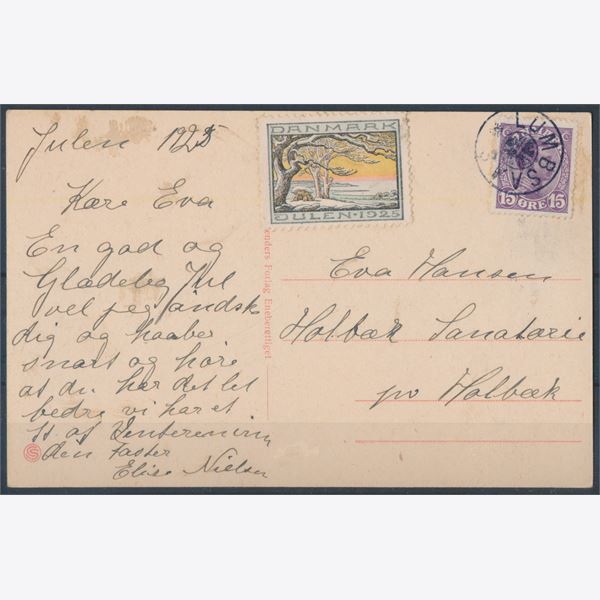 Julen 1925
Kære Eva
En god og
Glædelig Jul
vel jeg öndske
dig og haaber
snart og höre
at du har det let
bedre vi har et
af
din Faster
Elise Nielsen
DANMARK
JULEN·1925
LUMBSAA
15 ØRE 15
enders Forlag Eneberettiget
Eva Hansen
Holbæk Sanatorie
pr Holbæk